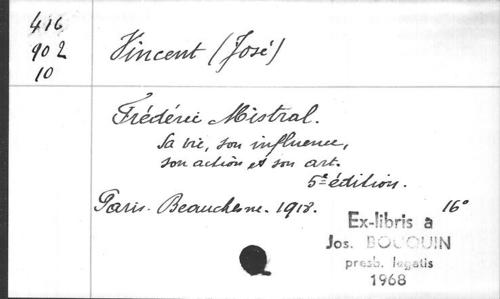 416
902
10
Vincent (José)
Frédéric Mistral.
Sa vie, son influence,
son action et son art.
5e édition.
Paris. Beauchesne. 1918. 16°
Ex-libris a
Jos. BOUQUIN
presb. legatis
1968